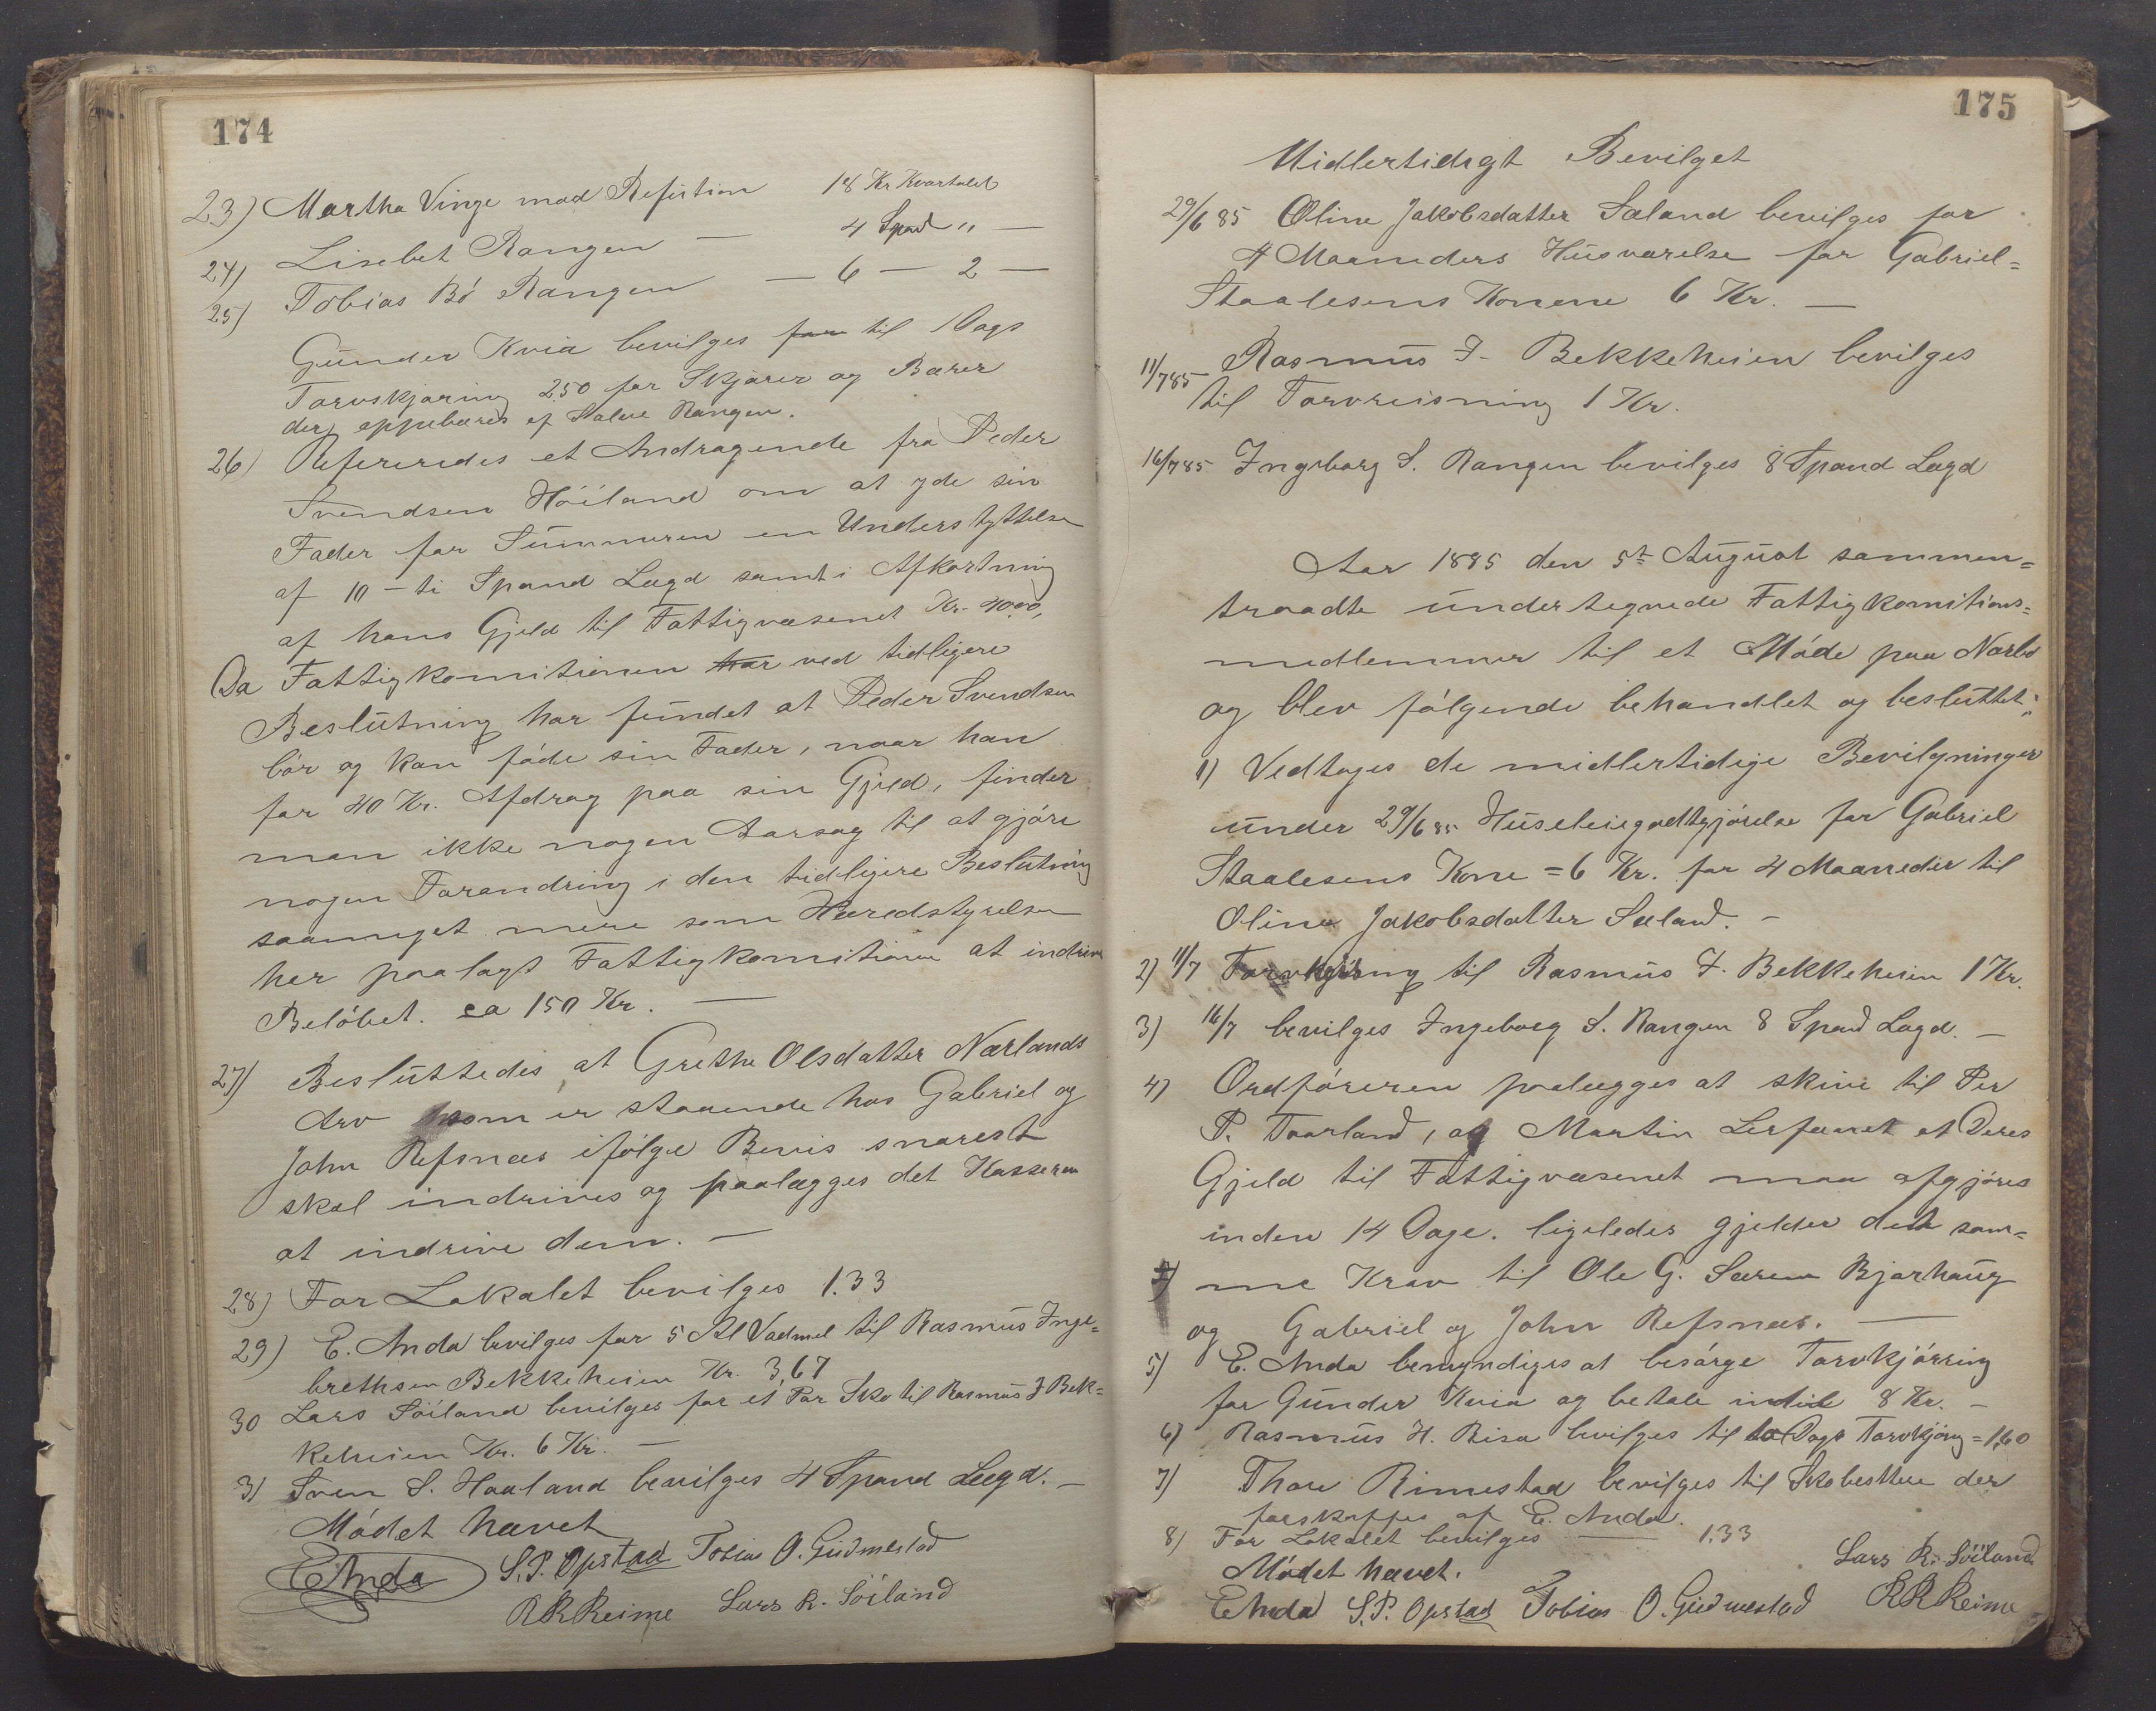 174
23) Martha Vinge mod Refusion 18 Kr Kvartalet
24) Lisebet Rangen — 4 Spand " —
25) Tobias Bö Rangen — 6 — 2 —
Gunder Kvia bevilges for til 1 Dags
Torvskjæring 2.50 for Skjærer og Bærer
der oppebæres af Staale Rangen.
26) Refereredes et Andragende fra Peder
Svendsen Höiland om at yde sin
Fader for Sommeren en Understyttelse
af 10 - ti Spand Lægd samt i Afkortning
af hans Gjeld til Fattigvæsenet Kr. 40.00,
Da Fattigkomitionen har ved tidligere
Beslutning har fundet at Peder Svendsen
bör og kan föde sin Fader, naar han
faar 40 Kr. Afdrag paa sin Gjeld, finder
man ikke nogen Aarsag til at gjöre
nogen Forandring i den tidligere Beslutning
saameget mere som Heredstyrelsen
har paalagt Fattigkomitionen at indrive
Belöbet. ca 150 Kr. —
27) Besluttedes, at Grethe Olsdatter Nærlands
Arv som er staaende hos Gabriel og
John Refsnæs ifölge Bevis snarest
skal indrives og paalægges det Kasseren
at indrive dem. —
28) For Lokalet bevilges 1.33
29) E. Anda bevilges for 5 Al Vadmel til Rasmus Inge=
brethsen Bekkeheien Kr. 3,67
30 Lars Söiland bevilges for et Par Sko til Rasmus I Bek=
keheien Kr. 6 Kr. —
31 Sven S. Haaland bevilges 4 Spand Lægd. —
Mödet hævet
E Anda S. P. Opstad Tobias O. Gudmestad
R R Reime Lars R. Söiland
175
Midlertidigt Bevilget
29/6 85 Oline Jakobsdatter Sæland bevilges for
4 Maaneders Husværelse for Gabriel=
Staalesens Konene 6 Kr. —
11/7 85 Rasmus I. Bekkeheien bevilges
til Torvreisning 1 Kr.
16/7 85 Ingeborg S. Rangen bevilges 8 Spand Lægd
Aar 1885 den 5te August sammen=
traadte undertegnede Fattigkomitions=
medlemmer til et Möde paa Nærbö
og blev fölgende behandlet og besluttet:
1) Vedtoges de midlertidige Bevilgninger
under 29/6 85 Huseleiegodtgjörelse for Gabriel
Staalesens Kone = 6 Kr. for 4 Maaneder til
Oline Jakobsdatter Sæland. —
2) 11/7 til Rasmus I. Bekkeheien 1 Kr.
3) 16/7 bevilges Ingeborg S. Rangen 8 Spand Lægd. —
4) Ordföreren paalægges at skive til Per
P. Taarland, og Martin Lerfaret at Deres
Gjeld til Fattigvæsenet maa afgjöres
inden 14 Dage. ligeledes gjelder det sam=
5) me Krav til Ole G. Bjorhaug
og Gabriel og John Refsnæs. —
5) E. Anda bemyndiges at besörge Torvkjörsing
for Gunder Kvia og betale indtil 8 Kr. —
6) Rasmus H. Risa bevilges til to Dags Torvkjöring = 1,60
7) Thore Rimestad bevilges til Skobesttere der
forskaffes af E. Anda.
8) For Lokalet bevilges — 1.33
Mödet hævet. Lars R. Söiland
E Anda S. P. Opstad Tobias O. Gudmestad R R Reime